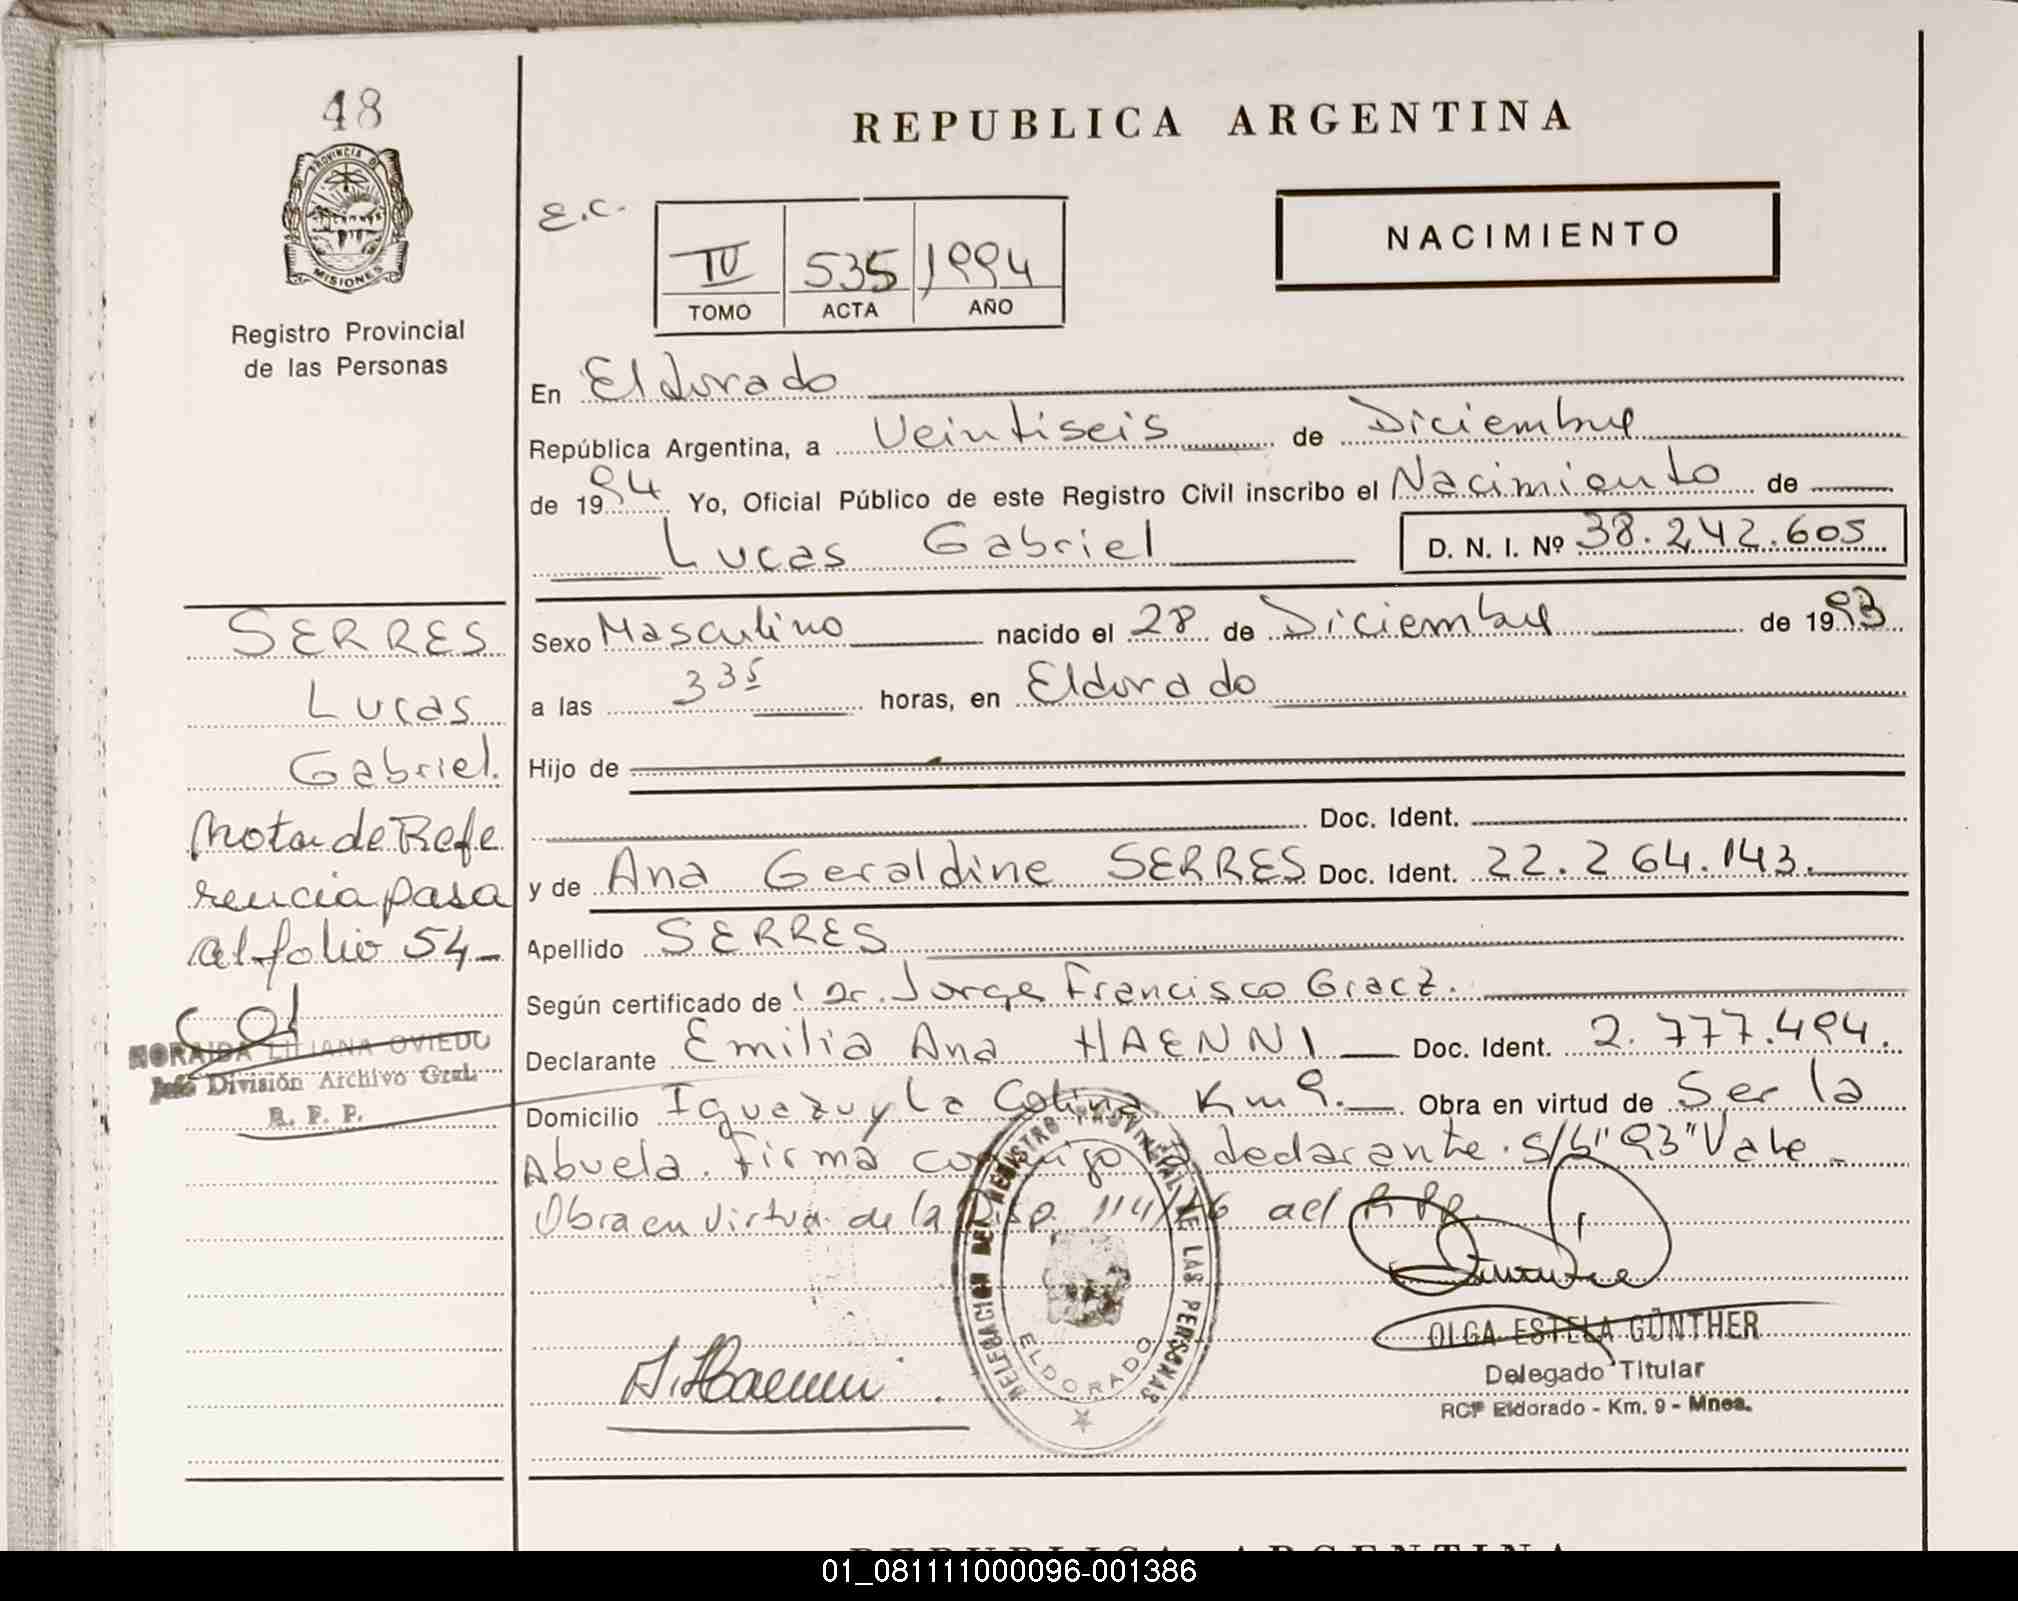 48
PROVINCIA DE
MISIONES
Registro Provincial
de las Personas
REPUBLICA ARGENTINA
E.C.
IV 535 1994
TOMO ACTA AÑO
NACIMIENTO
En Eldorado
República Argentina, a Veintiseis de Diciembre
de 1994 Yo, Oficial Público de este Registro Civil inscribo el Nacimiento de
Lucas Gabriel D. N. I. Nº 38.242.605
Sexo Masculino nacido el 28 de Diciembre de 1993
a las 3 35 horas, en Eldorado
Hijo de
Doc. Ident.
y de Ana Geraldine SERRES Doc. Ident. 22.264.143.
Apellido SERRES
Según certificado de Dr. Jorge Francisco Gracz.
Declarante Emilia Ana HAENNI Doc. Ident. 2.777.494.
Domicilio Iguazu y La Colina Km 9. Obra en virtud de Ser la
Abuela. Firma conmigo la declarante. s/b "93" Vale
Obra en virtud de la Disp. 114/ del
A. Haenni
DELEGACION DEL REGISTRO PROVINCIAL DE LAS PERSONAS
ELDORADO
OLGA ESTELA GÜNTHER
Delegado Titular
RCP Eldorado - Km. 9 - Mnes.
SERRES
Lucas
Gabriel.
Nota de Refe
rencia pasa
al folio 54
NORAIDA LILIANA OVIEDO
Jefe División Archivo Gral.
R. P. P.
REPUBLICA ARGENTINA
01_081111000096-001386